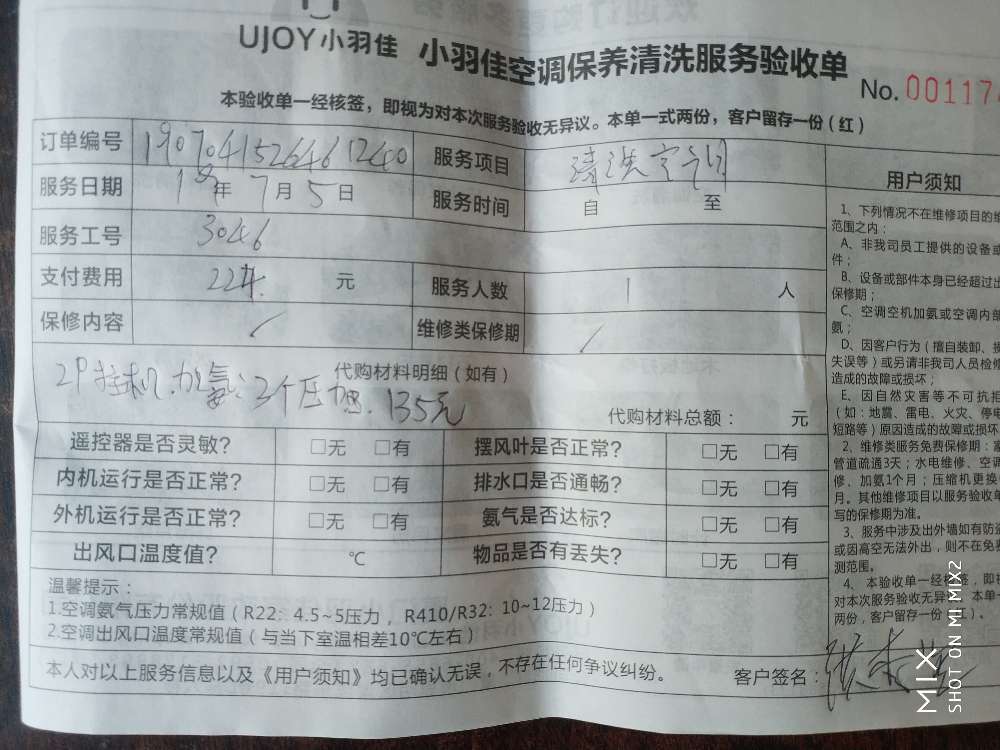 UJOY小羽佳 小羽佳空调保养清洗服务验收单
No. 001174
本验收单一经核签，即视为对本次服务验收无异议。本单一式两份，客户留存一份(红)
订单编号 190704152646 1240 服务项目 清洗空调
服务日期 19年 7月 5日 服务时间 自 至
服务工号 3046
支付费用 224. 元 服务人数 1 人
保修内容 维修类保修期
代购材料明细（如有）
2P挂机.加氨：3个压力. 135元
代购材料总额： 元
遥控器是否灵敏? □无 □有 摆风叶是否正常? □无 □有
内机运行是否正常? □无 □有 排水口是否通畅? □无 □有
外机运行是否正常? □无 □有 氨气是否达标? □无 □有
出风口温度值? ℃ 物品是否有丢失? □无 □有
温馨提示：
1.空调氨气压力常规值（R22：4.5~5压力，R410/R32：10~12压力）
2.空调出风口温度常规值（与当下室温相差10℃左右）
本人对以上服务信息以及《用户须知》均已确认无误，不存在任何争议纠纷。 客户签名：
用户须知
1、下列情况不在维修项目的维
范围之内：
A、非我司员工提供的设备或
件；
B、设备或部件本身已经超过出
保修期；
C、空调空机加氨或空调内部
氨；
D、因客户行为（擅自装卸、损
失误等）或另请非我司人员检修
造成的故障或损坏；
E、因自然灾害等不可抗拒
(如：地震、雷电、火灾、停电
短路等）原因造成的故障或损坏
2、维修类服务免费保修期：
管道疏通3天；水电维修、空调
修、加氨1个月；压缩机更换
月。其他维修项目以服务验收单
写的保修期为准。
3、服务中涉及出外墙如有防盗
或因高空无法外出，则不在免费
测范围。
4、本验收单一经核签，即视
对本次服务验收无异议。本单一
两份，客户留存一份（红）。
MIX
SHOT ON MI MIX2